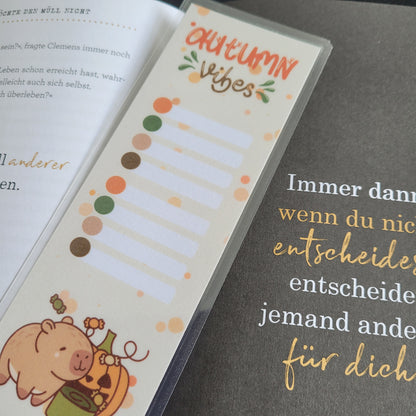 CHTE DEN MÜLL NICHT
sein?«, fragte Clemens immer noch
Leben schon erreicht hast, wahr-
elleicht auch sich selbst.
ch überleben?«
ll anderer
en.
AUTUMN
vibes
Immer dann
wenn du nic
entscheides
entscheide
jemand ande
für dich